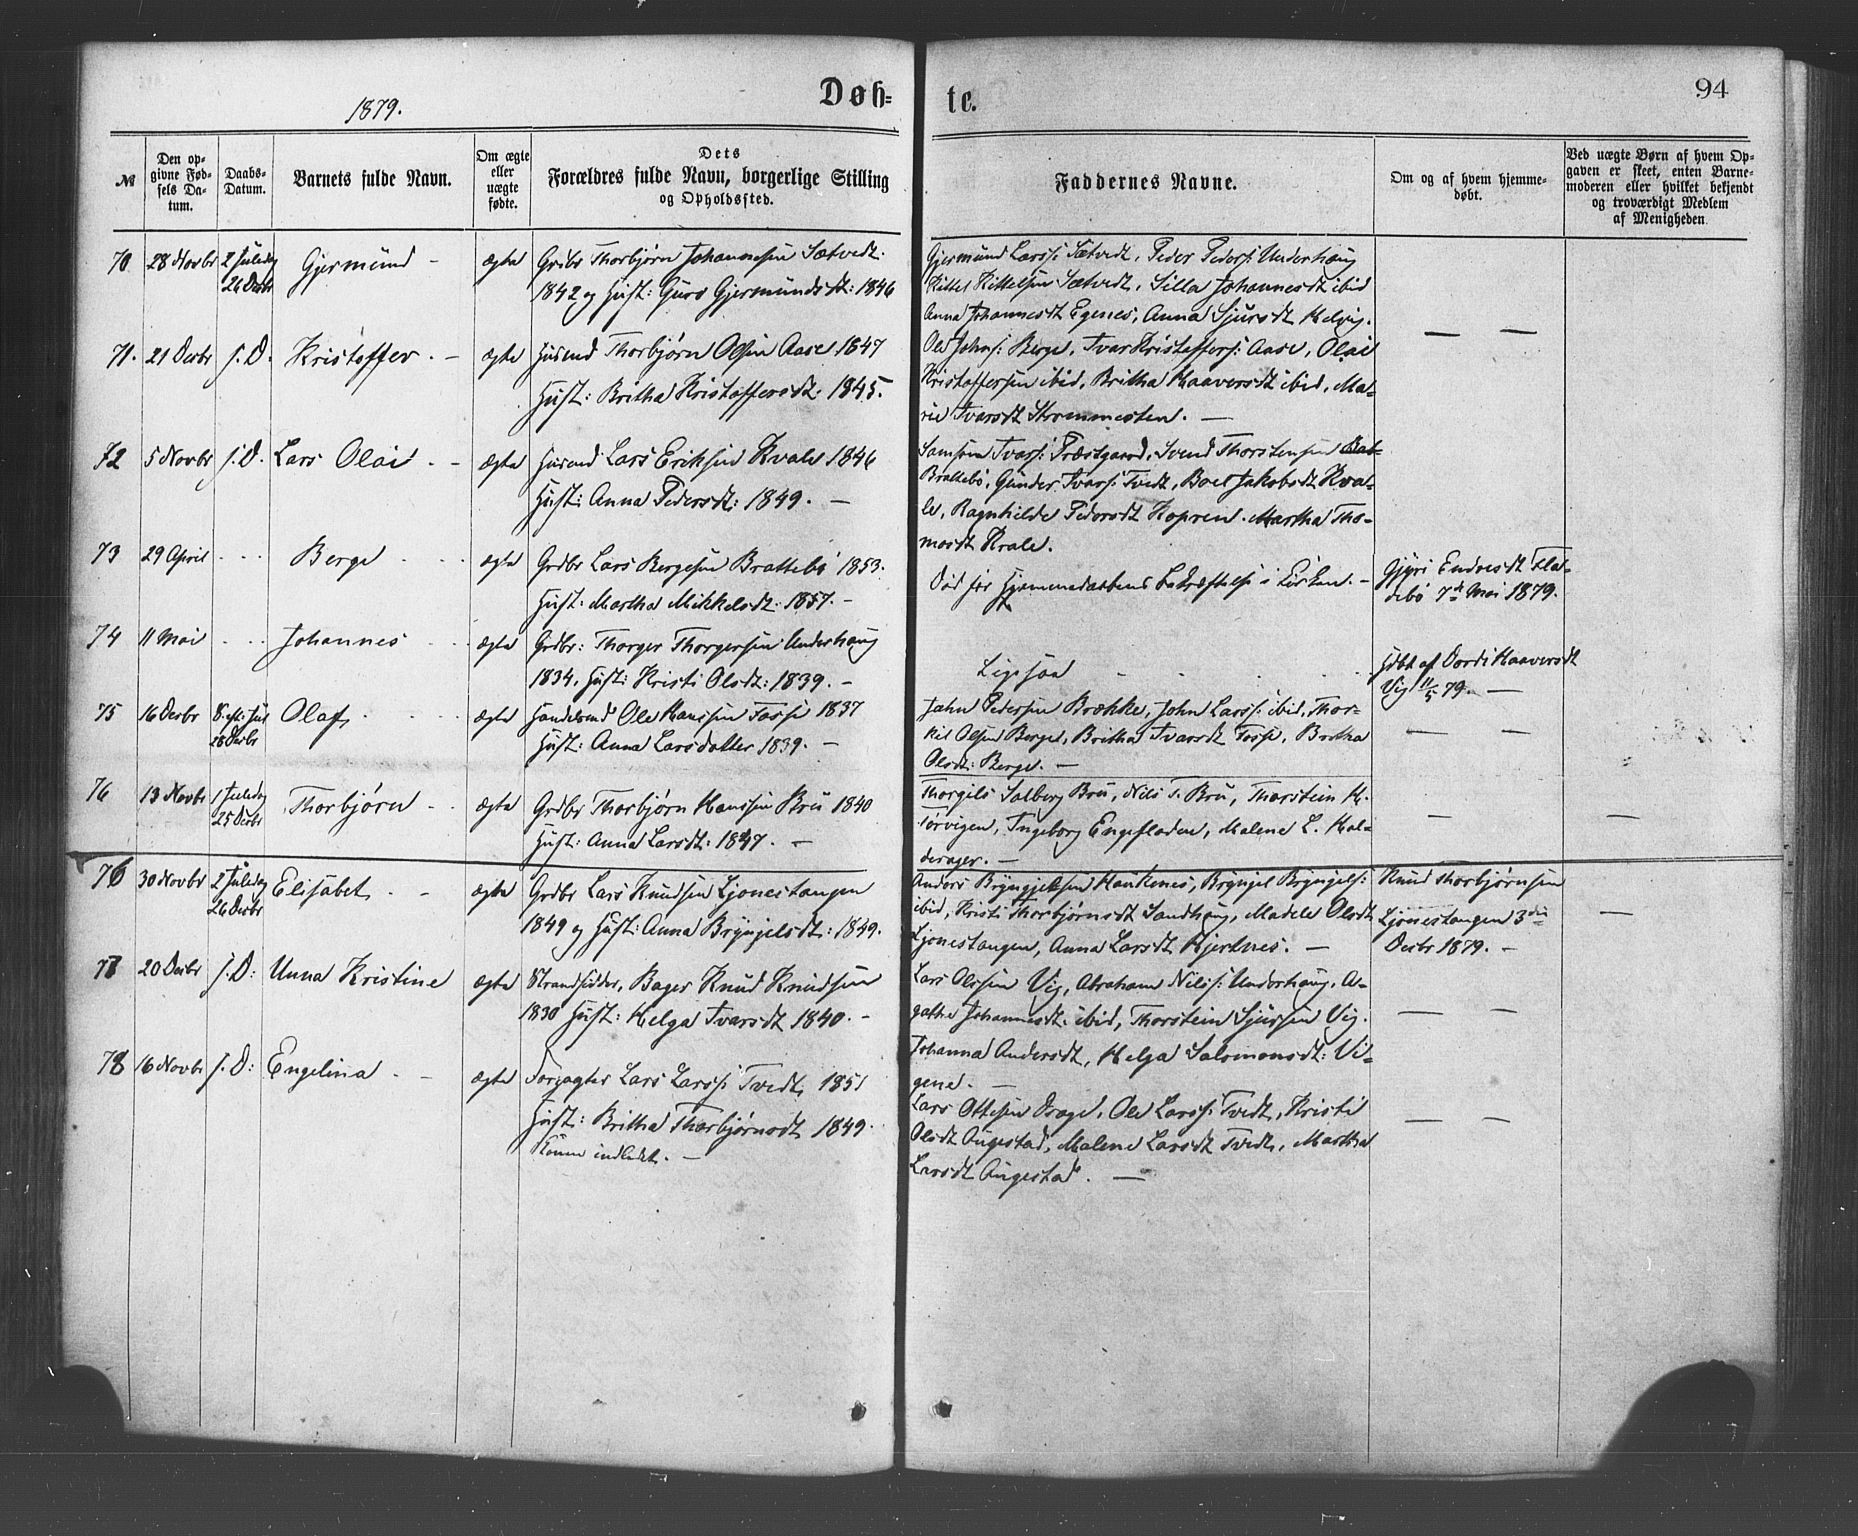 1879.
Døb=
te.
94
№
Den op-
givne Fød-
sels Da-
tum.
Daabs-
Datum.
Barnets fulde Navn.
Om ægte
eller
uægte
fødte.
Dets
Forældres fulde Navn, borgerlige Stilling
og Opholdssted.
Faddernes Navne.
Om og af hvem hjemme-
døbt.
Ved uægte Børn af hvem Op-
gaven er skeet, enten Barne-
moderen eller hvilket bekjendt
og troværdigt Medlem
af Menigheden.
70 28 Novbr 2 Juledag
26 Decbr
Gjermund - ægte
Grdbr Thorbjørn Johannesen Sætvedt.
1842 og Hust: Guro Gjermundsdt: 1846
Gjermund Larss: Sætvedt, Peder Peders: Underhaug
Kittel Kittelsen Sætvedt, Silla Johannesdt ibid
Anna Johannesdt Egenes, Anna Sjursdt Helvig.
71. 21 Decbr s. D. Kristoffer. - ægte
Husmd Thorbjørn Olsen Aase 1847
Hust: Britha Kristoffersdt: 1845.
Ole Johns: Berge, Ivar Kristoffers: Aase, Olai
Kristoffersen ibid, Britha Haaversdt ibid, Ma-
rie Ivarsdt Strommesten. -
72 5 Novbr s. D. Lars Olai - ægte
Husmd Lars Eriksen Kvale 1846
Hust: Anna Pedersdt: 1849. -
Samson Ivars: Præstgaard, Svend Thorstensen
Brattebø, Gunder Ivars: Tvedt, Boel Jakobsdt Kva-
le, Ragnhilde Pedersdt Kopren. Martha Tho-
masdt Kvale.
73 29 April Berge ægte
Grdbr Lars Bergesen Brattebø 1853.
Hust: Martha Mikkelsdt: 1857. -
Død før Hjemmedaabens Bekræftelse i Kirken. -
Gjyri Endresdt Fla-
tebø 7de Mai 1879.
74 11 Mai Johannes ægte
Grdbr: Thorger Thorgersen Underhaug
1834, Hust: Kristi Olsdt: 1839. -
Ligesaa
Hdbt af Dordi Haaversdt
Vig 11/5 79. -
75 16 Decbr S. eft. Jul
28 Decbr
Olaf ægte
Handelsmd Ole Hanssen Fosse 1837
Hust: Anna Larsdatter 1839. -
John Pedersen Brække, John Larss: ibid, Thor-
kil Olsen Berge, Britha Ivarsdt Fosse, Britha
Olsdt: Berge. -
76 13 Novbr 1 Juledag
25 Decbr
Thorbjørn ægte
Grdbr Thorbjørn Hanssen Bru 1840
Hust: Anna Larsdt: 1847. -
Thorgils Solberg Bru, Nils T. Bru, Thorstein H.
Torvigen, Ingeborg Engefladen, Malene L. Hal-
derager. -
76 30 Novbr 2 Juledag
26 Decbr
Elisabet ægte
Grdbr Lars Knudsen Ljonestangen
1849 og Hust: Anna Brynjelsdt: 1849.
Anders Brynjelsen Haukenes, Brynjel Brynjels:
ibid, Kristi Thorbjørnsdt Sandhaug, Madele Olsdt
Ljonestangen, Anna Larsdt Kjerkenes. -
Knud Thorbjørnsen
Ljonestangen 3die
Decbr 1879. -
77 20 Decbr s. D: Unna Kristine ægte
Strandsidder, Bager Knud Knudsen
1830 Hust: Helga Ivarsdt 1840. -
Lars Olssen Vig, Abraham Nils: Underhaug, A-
gathe Johannesdt ibid, Thorstein Sjursen Vig.
Johanna Andersdt, Helga Salomonsdt: Vi-
gene. -
78 16 Novbr s. D: Engelina - ægte
Forpagter Lars Larss: Tvedt 1851
Hust: Britha Thorbjørnsdt 1849.
Konen indledet. -
Lars Ottesen Drage, Ole Larss: Tvedt, Kristi
Olsdt Augestad, Malene Larsdt Tvedt, Martha
Larsdt Augestad. -